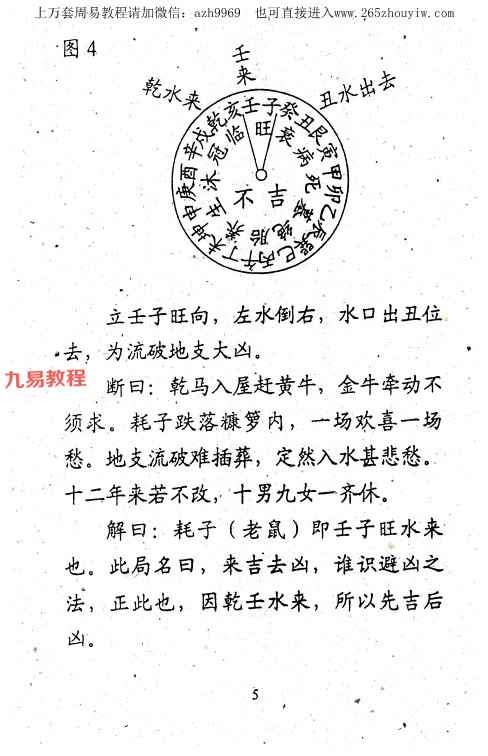 上万套周易教程请加微信：azh9969 也可直接进入www.265zhouyiw.com
图4
壬来
乾水来
丑水出去
壬子癸丑艮寅甲卯乙辰巽巳丙午丁未坤申庚酉辛戌乾亥
旺衰病死墓绝胎养生沐冠临
不吉
立壬子旺向，左水倒右，水口出丑位
去，为流破地支大凶。
九易教程
断曰：乾马入屋赶黄牛，金牛牵动不
须求。耗子跌落糠箩内，一场欢喜一场
愁。地支流破难插葬，定然入水甚悲愁。
十二年来若不改，十男九女一齐休。
解曰：耗子（老鼠）即壬子旺水来
也。此局名曰，来吉去凶，谁识避凶之
法，正此也，因乾壬水来，所以先吉后
凶。
5